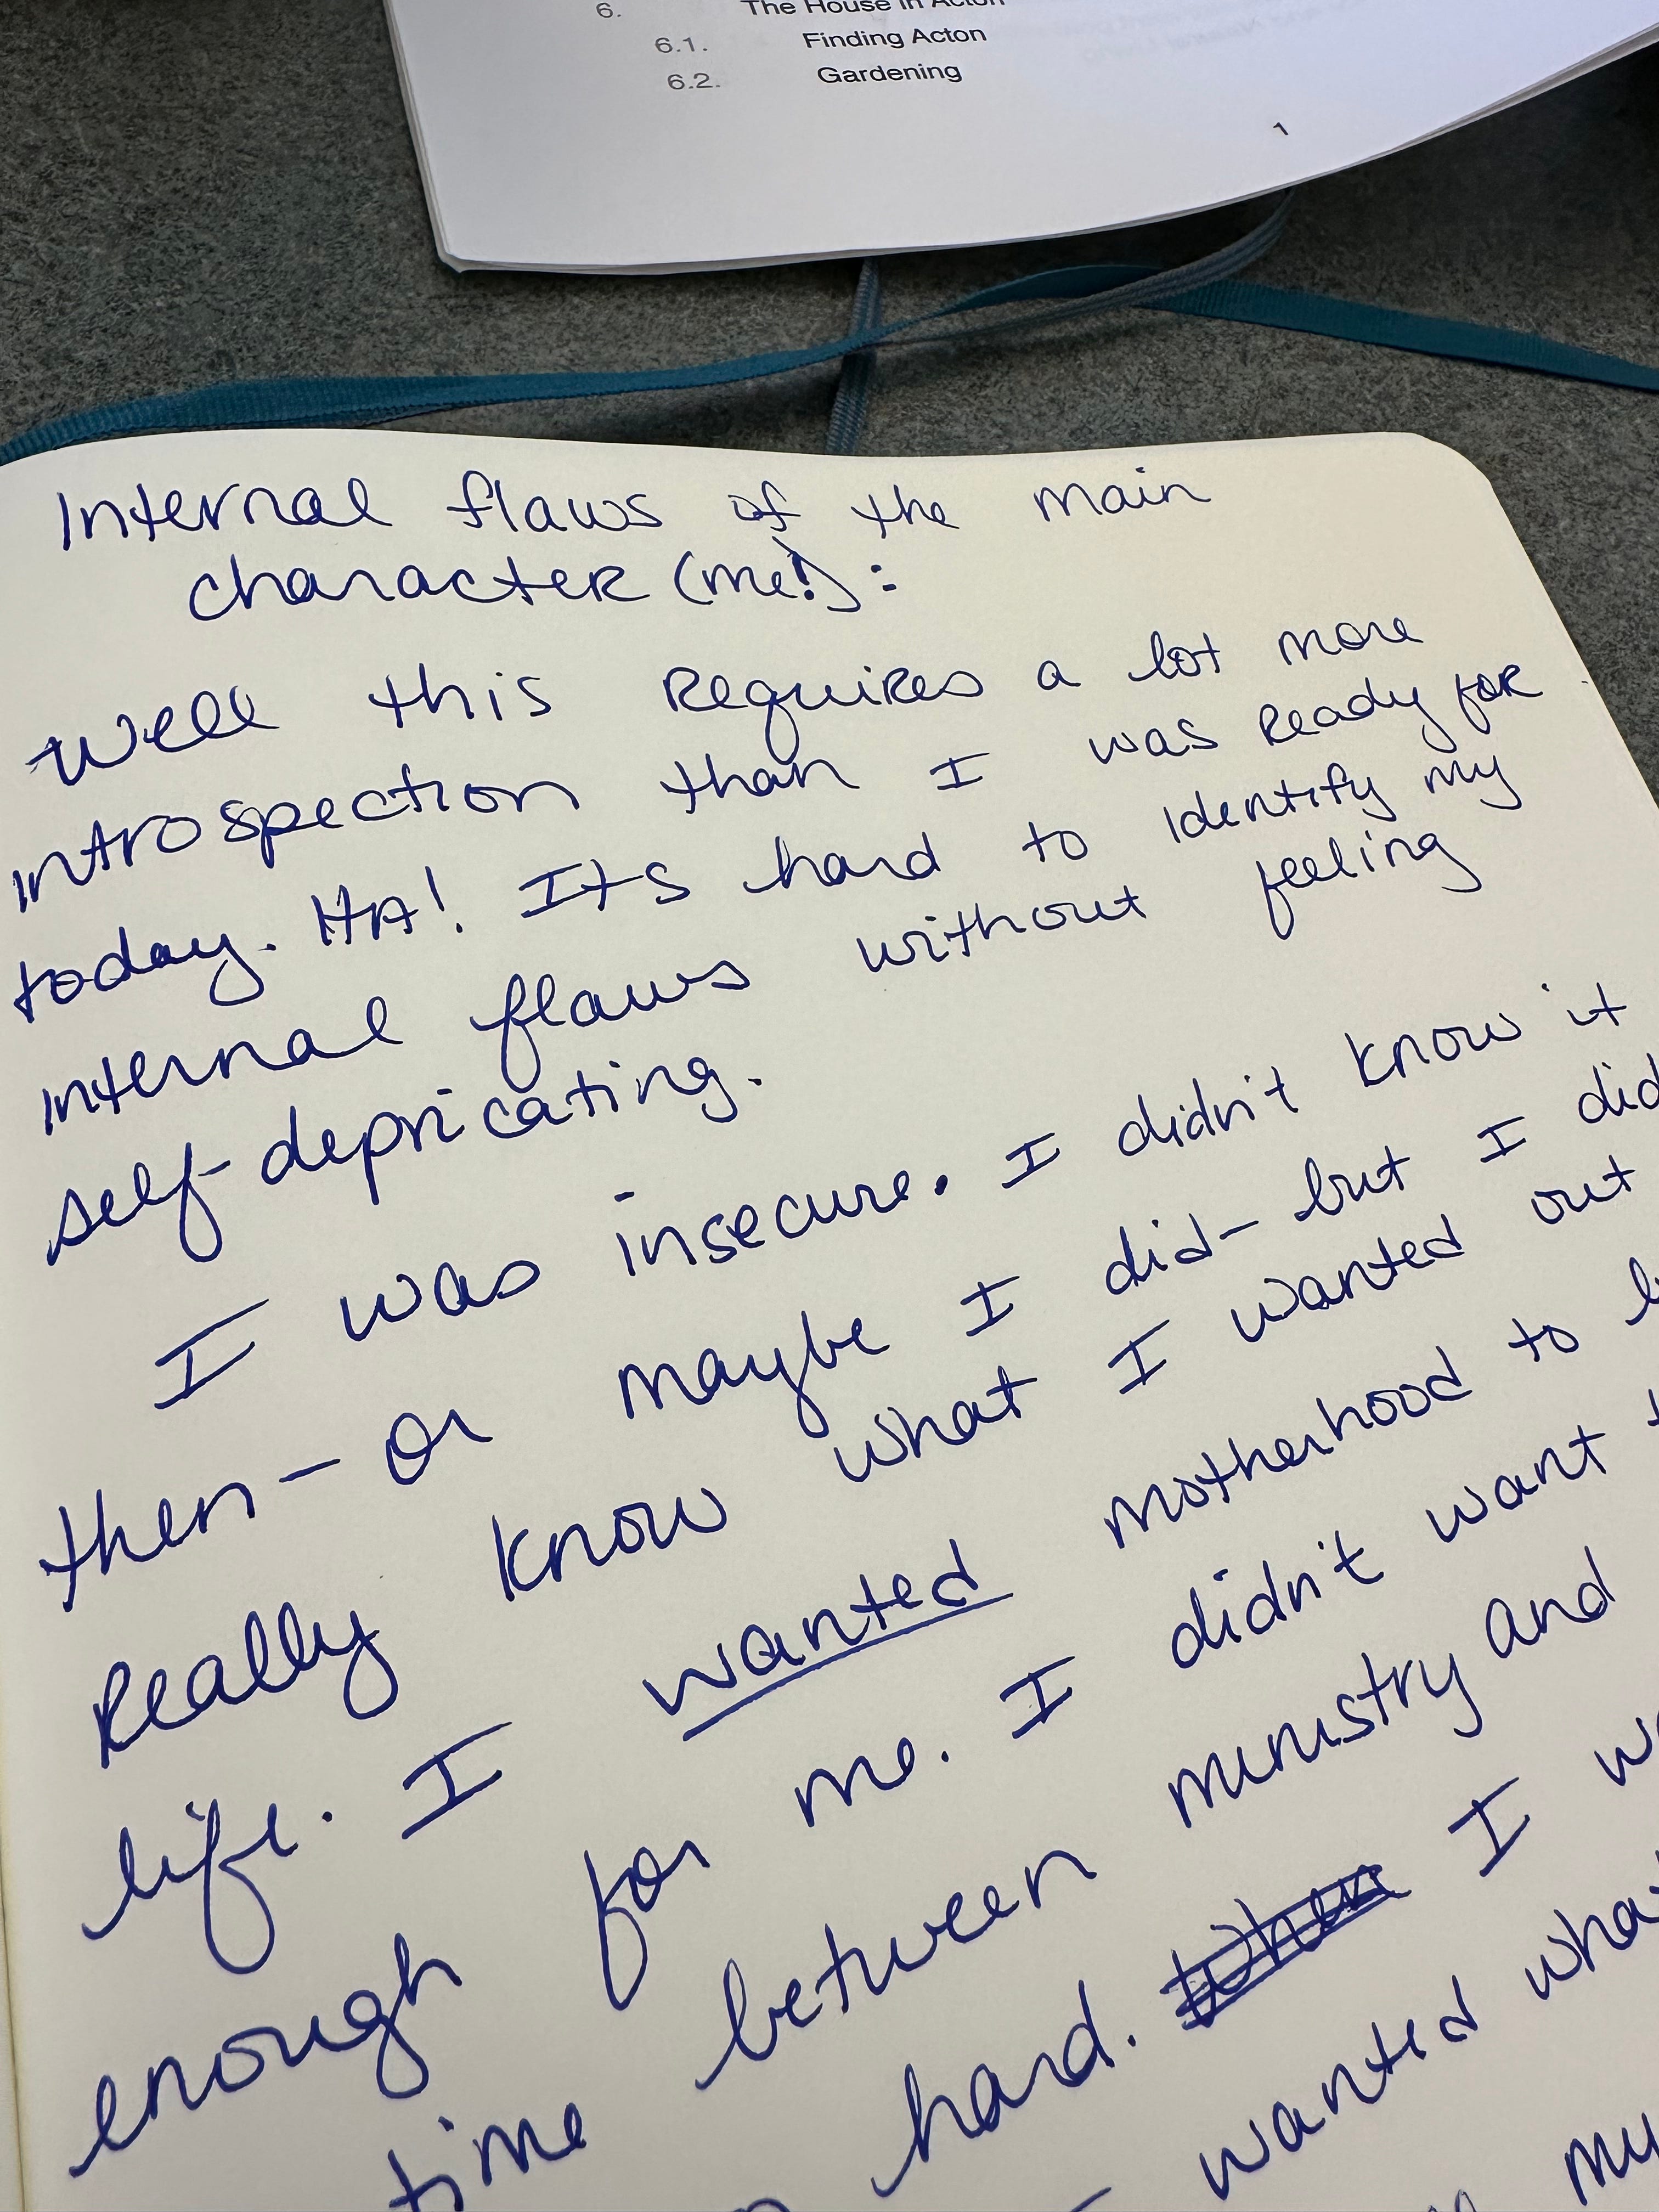 6. The House in Acton
6.1. Finding Acton
6.2. Gardening
1
Internal flaws of the main
character (me!):
Well this requires a lot more
introspection than I was ready for
today. HA! Its hard to identify my
internal flaws without feeling
self-depricating.
I was insecure. I didn't know it
then - or maybe I did - but I did
really know what I wanted out
life. I wanted motherhood to
enough for me. I didn't want
time between ministry and
hard. I
wanted